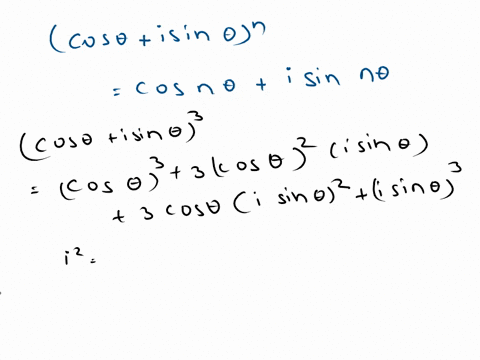 (cosθ + i sin θ)ⁿ
= cos nθ + i sin nθ
(cosθ + i sin θ)³
= (cos θ)³ + 3 (cos θ)² (i sin θ)
+ 3 cosθ (i sin θ)² + (i sin θ)³
i² =